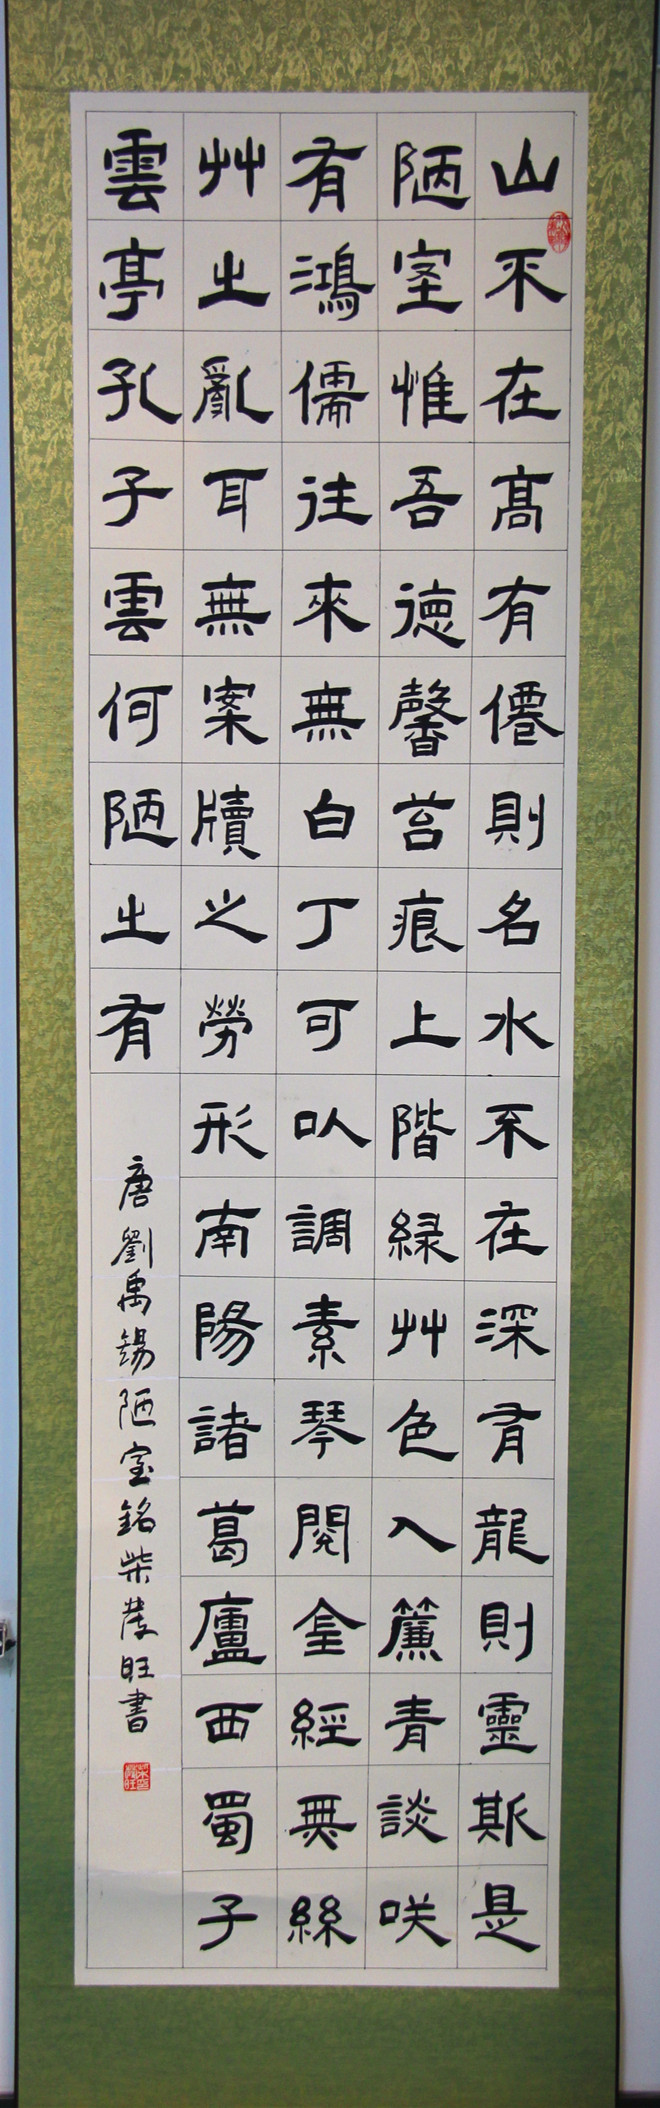 山不在髙有僊則名水不在深有龍則靈斯是
陋室惟吾徳馨苔痕上階緑艸色入簾青談咲
有鴻儒往來無白丁可以調素琴閱金經無絲
艸之亂耳無案牘之勞形南陽諸葛廬西蜀子
雲亭孔子雲何陋之有
唐劉禹錫陋室銘柴旺書